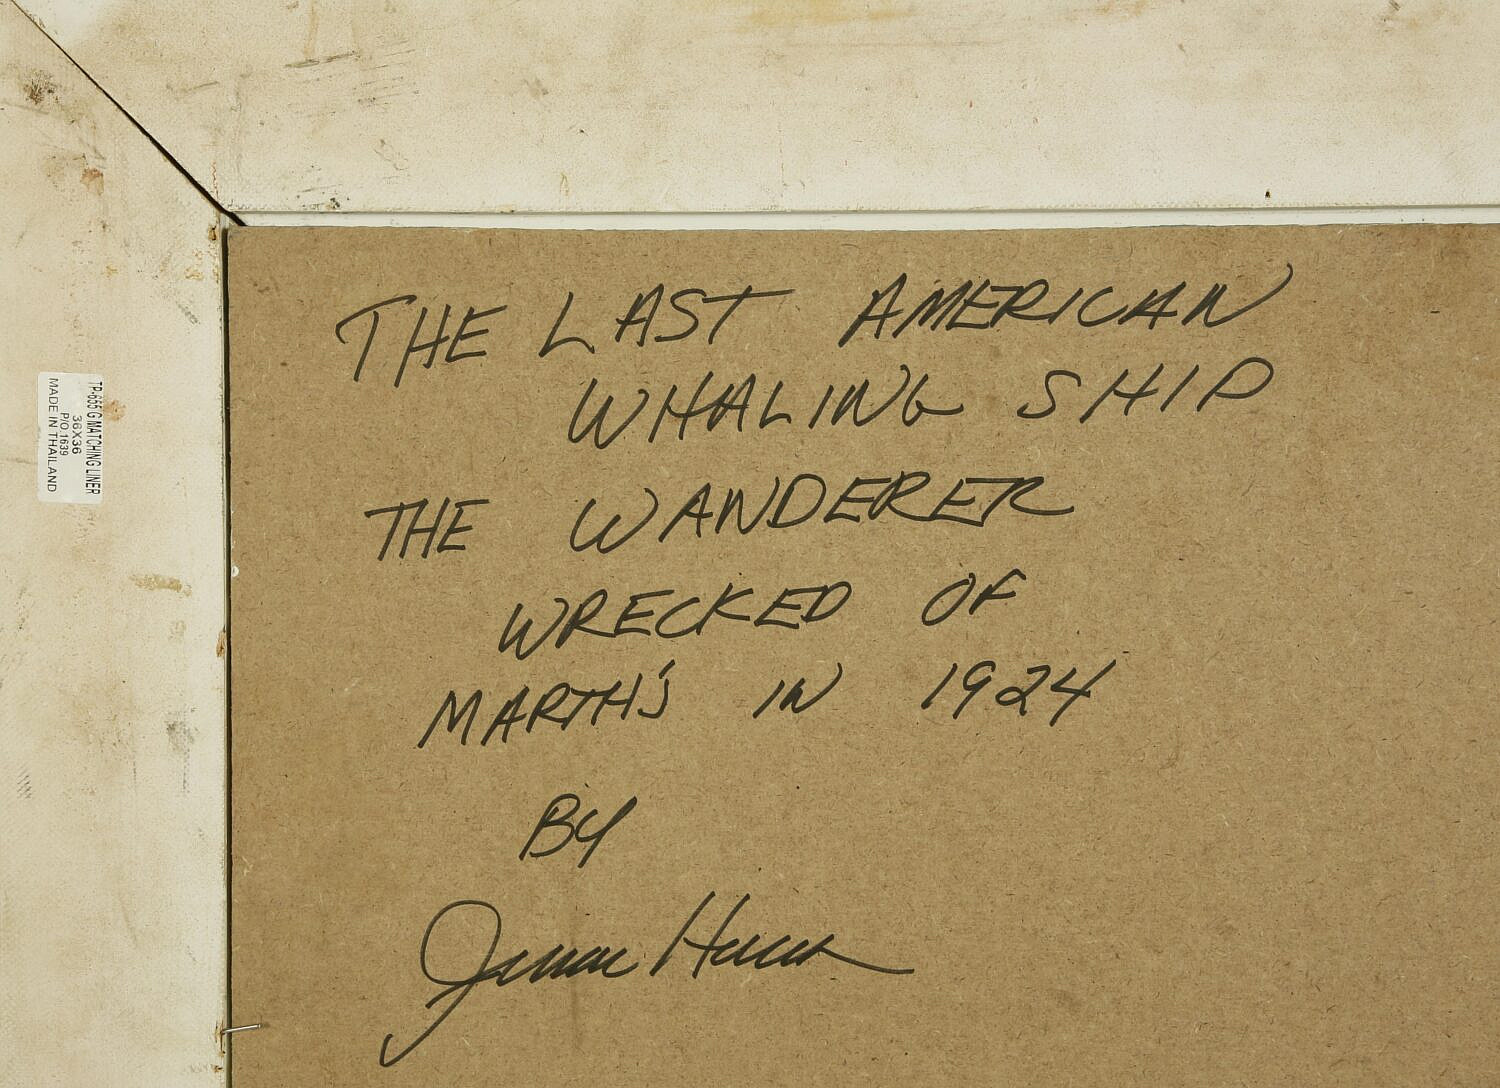 THE LAST AMERICAN
WHALING SHIP
THE WANDERER
WRECKED OF
MARTH'S IN 1924
BY
TP-655 G MATCHING LINER
36X36
P/O 1639
MADE IN THAILAND